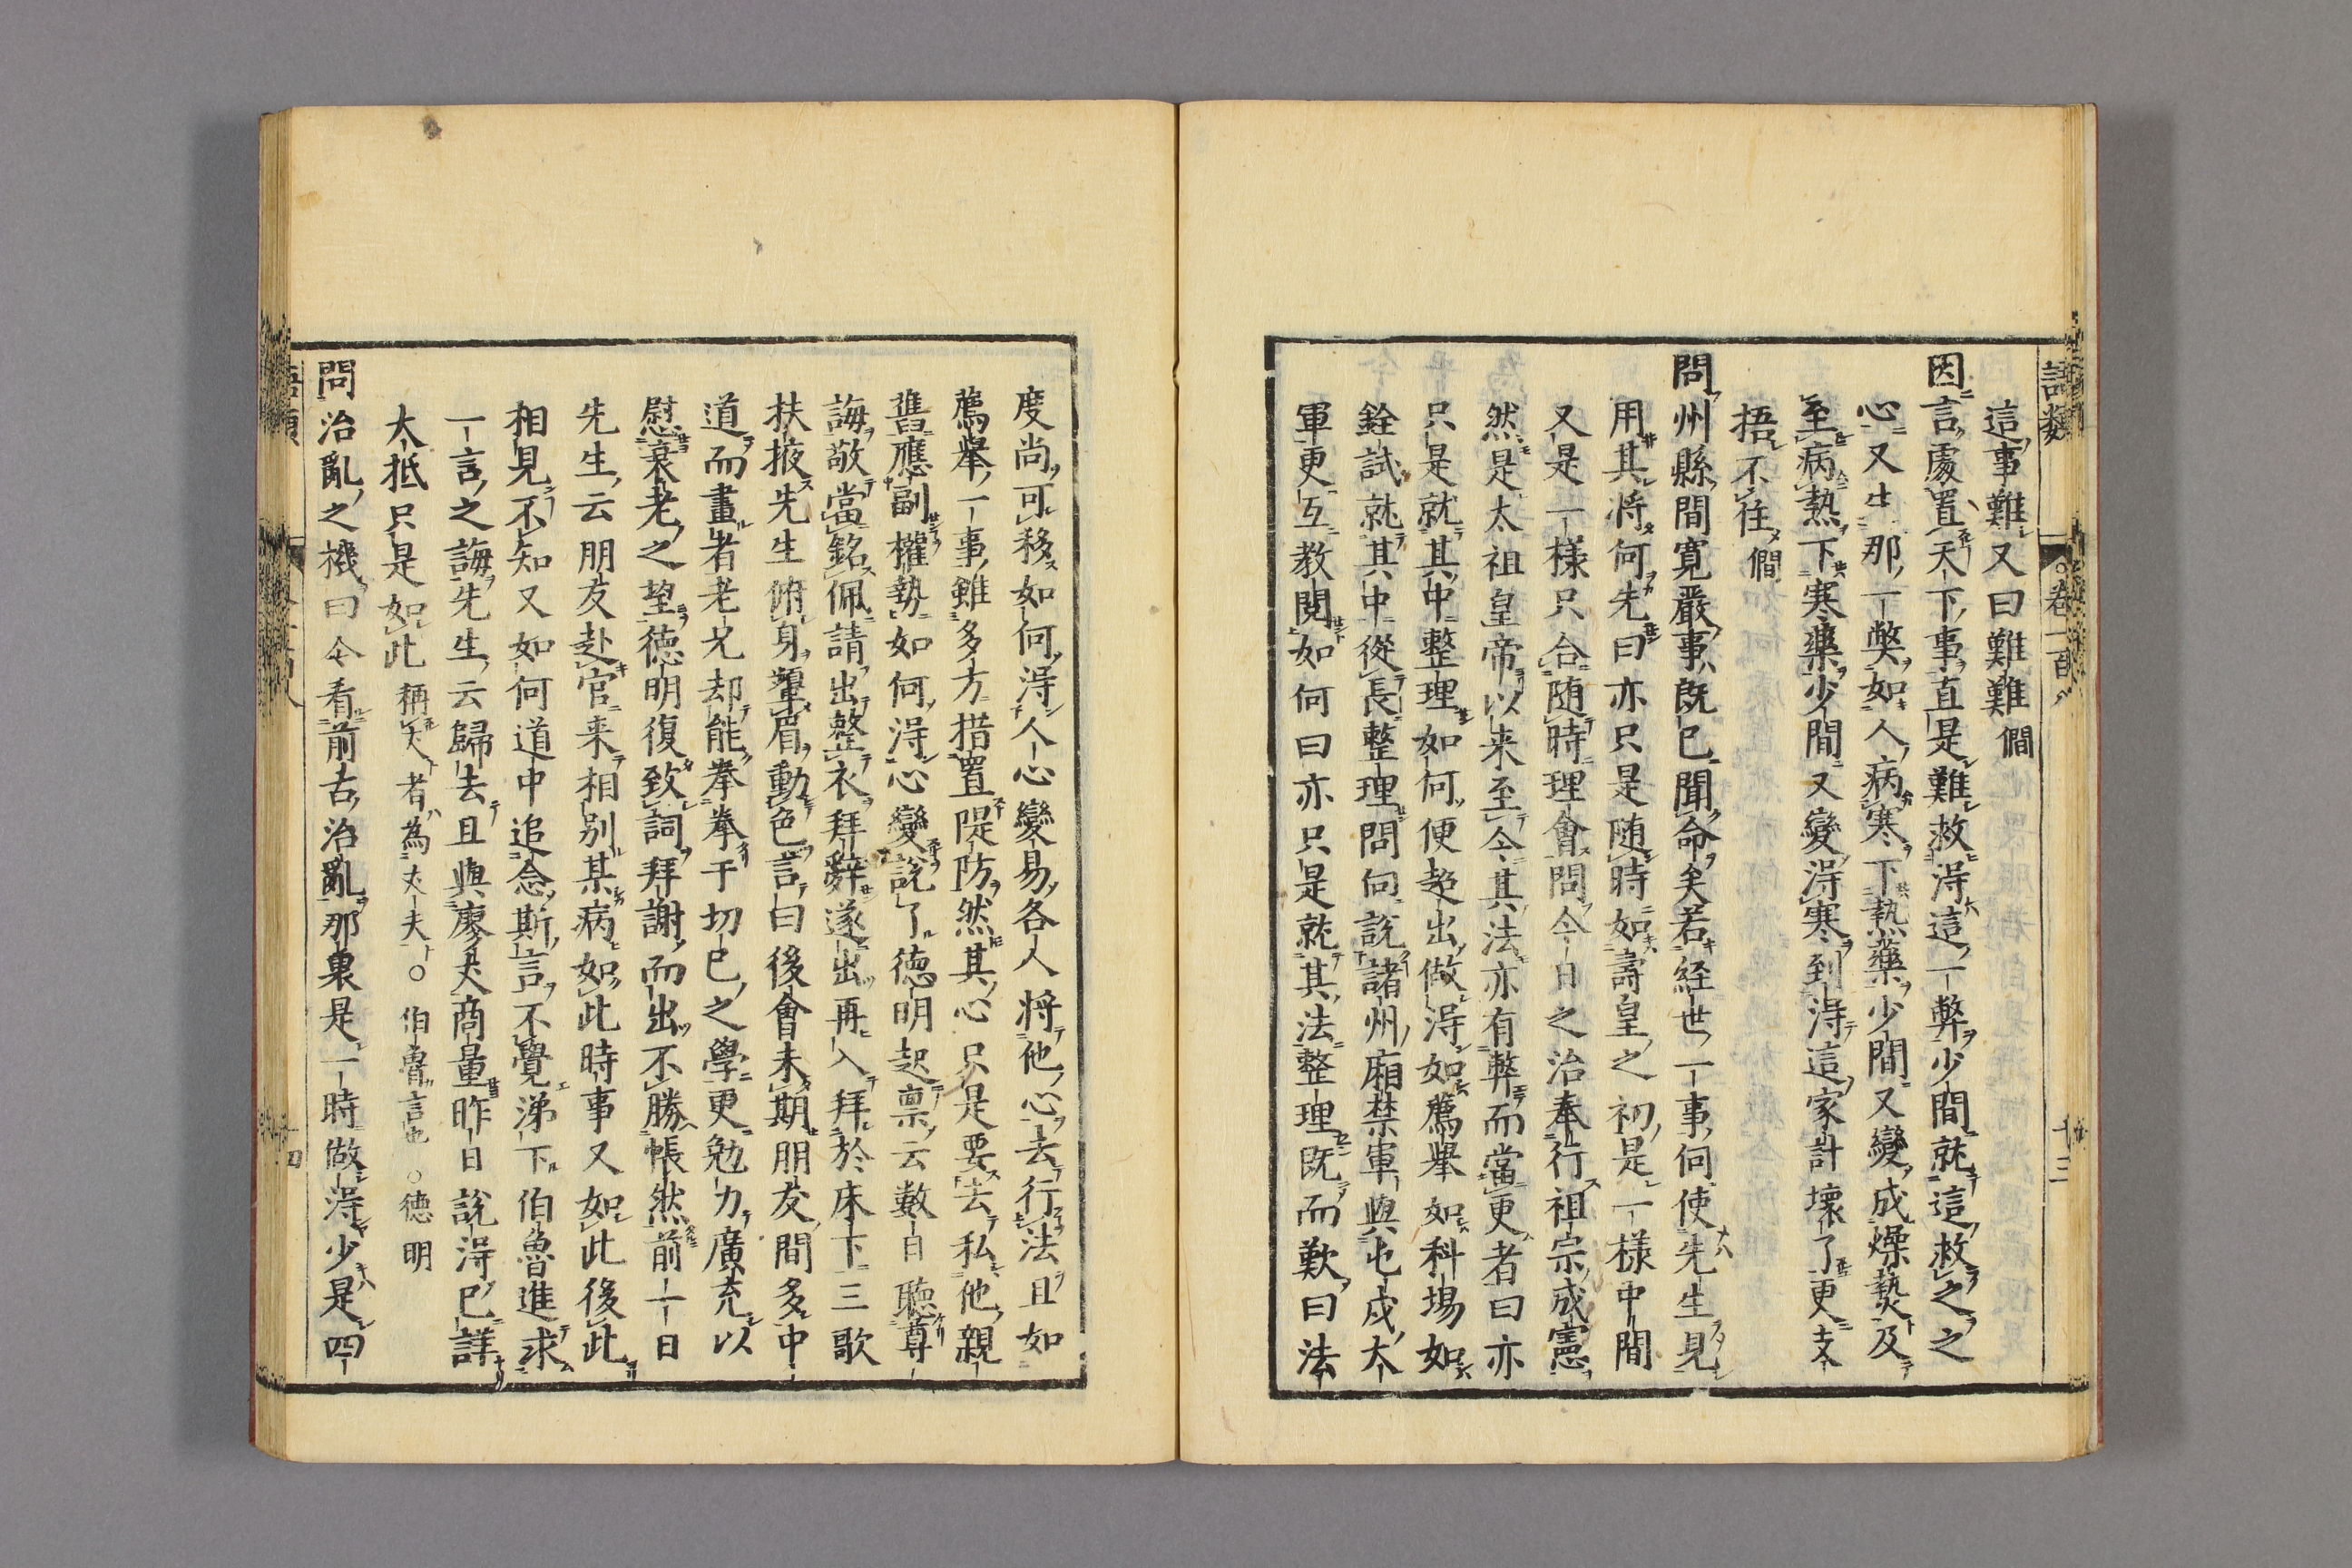 語類
卷一百八
十三
這事難又曰難難僩
因言處置天下事直是難救得這一弊少間就這救之之
心又生那一弊如人病寒下熱藥少間又變成燥熱及
至病熱下寒藥少間又變得寒到得這家計壞了更支
捂不住僩
問州縣間寬嚴事既已聞命矣若経世一事向使先生見
用其将何先曰亦只是随時如壽皇之初是一樣中間
又是一樣只合随時理會問今日之治奉行祖宗成憲
然是太祖皇帝以来至今其法亦有弊而當更者曰亦
只是就其中整理如何便超出做得如薦舉如科場如
銓試就其中從長整理問向說諸州廂禁軍與屯戍大
軍更互教閱如何曰亦只是就其法整理既而歎曰法
度尚可移如何得人心變易各人将他心去行法且如
薦舉一事雖多方措置隄防然其心只是要去私他親
舊應副權勢如何得心變說了德明起禀云數日聽尊
誨敬當銘佩請出整衣拜辭遂出再入拜於床下三歌
扶掖先生俯身顰眉動色言曰後會未期朋友間多中
道而畫者老兄却能拳拳于切已之學更勉力廣充以
慰衰老之望德明復致詞拜謝而出不勝悵然前一日
先生云朋友赴官来相別某病如此時事又如此後此
相見不知又如何道中追念斯言不覺涕下伯魯進求
一言之誨先生云歸去且與廖丈商量昨日說得已詳
大抵只是如此 稱丈者為丈夫○伯魯言也○德明
問治亂之機曰今看前古治亂那裏是一時做得少是四